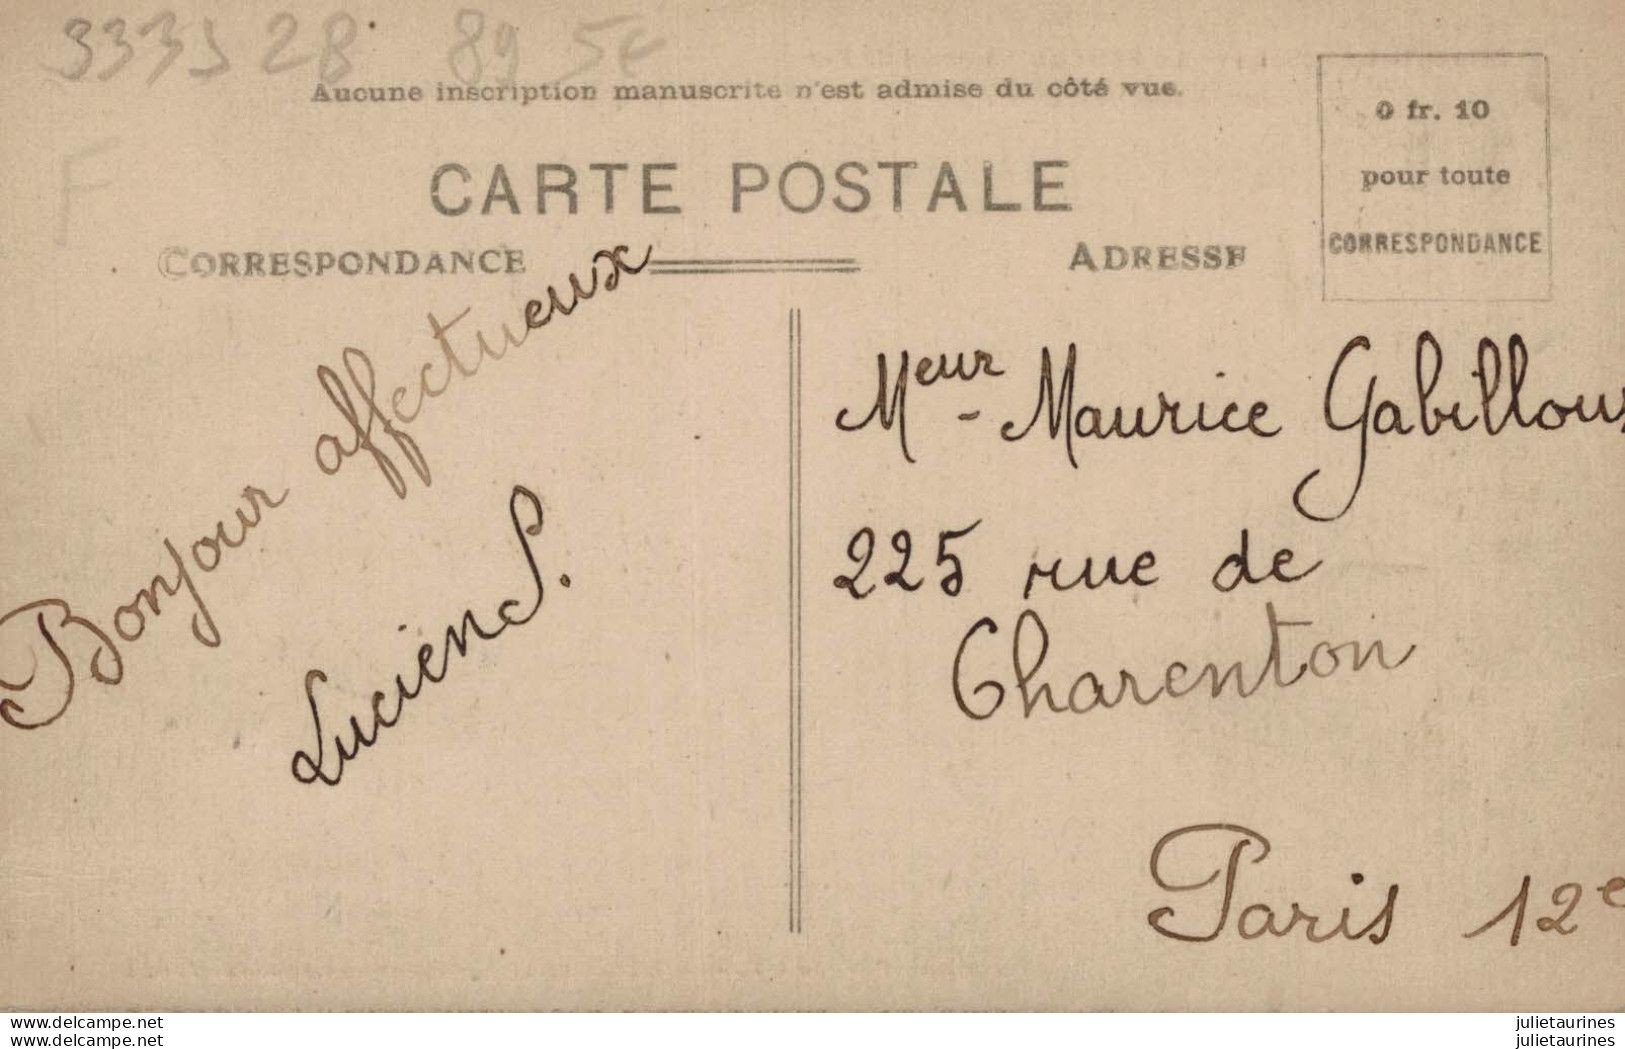 3335 28 89 5€
Aucune inscription manuscrite n'est admise du côté vue.
0 fr. 10
pour toute
CORRESPONDANCE
F
CARTE POSTALE
CORRESPONDANCE
ADRESSE
Bonjour affectueux
Lucien S.
Meur - Maurice Gabilloux
225 rue de
Charenton
Paris 12e
www.delcampe.net
www.delcampe.net
julietaurines
julietaurines